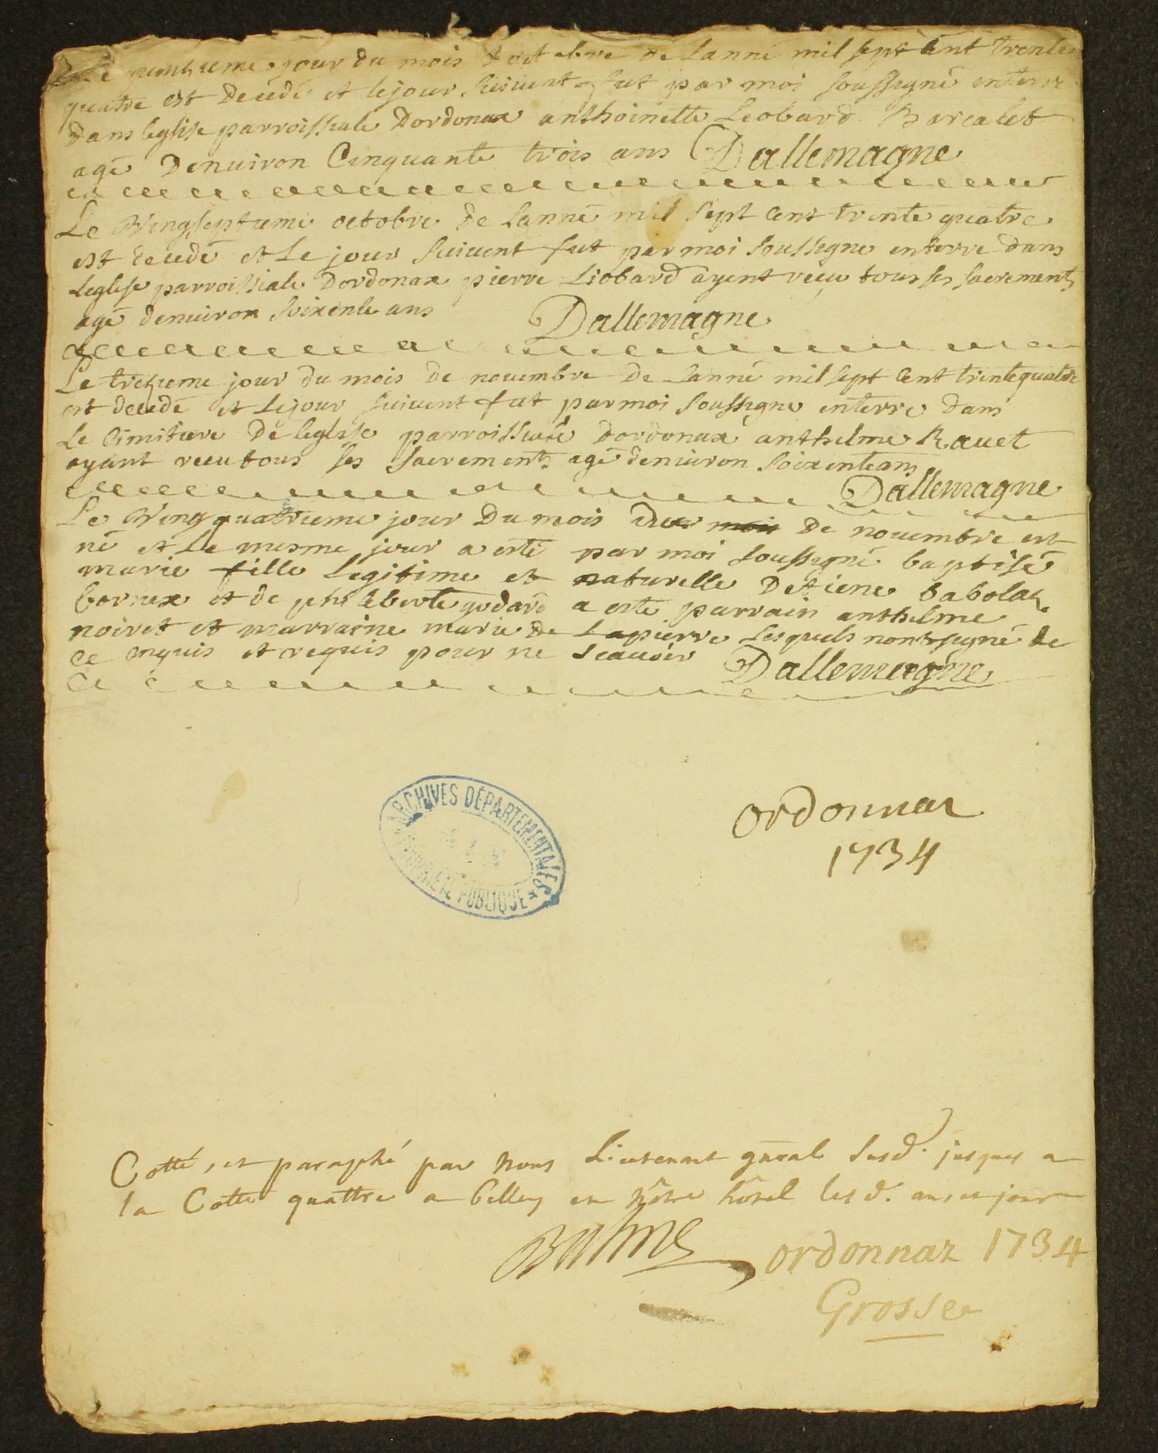 jour du mois d'octobre de Lanné mil sept Cent trente
quatre est decedé et lejour suivent fut par moi soussigné enterré
dans leglise parroissiale Dordonax anthoinette Leobard Barcalet
agé Denviron Cinquante trois ans Dallemagne
Le vingseptieme octobre de Lanné mil sept cent trente quatre
est decedé et Le jour suivent fut par moi soussigne enterré dans
Leglise parroissiale Dordonax pierre Liobard ayent reçu tous ses sacrements
agé denviron soixente ans Dallemagne
Le treizieme jour du mois de novembre de Lanné mil sept Cent trente quatre
est decedé et Lejour suivent fut par moi soussigne enterré dans
Le Cimitiere De leglise parroissiale Dordonax anthelme Ravet
ayant reçu tous ses sacrements agé denviron soixente ans
Dallemagne
Le Ving quatrieme jour Du mois De novembre est
né et Le mesme jour a esté par moi soussigné baptisé
marie fille Legitime et naturelle Detiene babolat
bornex et de philiberte godard a esté parrain anthelme
noiret et marraine marie de Lapierre Lesquels nont signé de
ce enquis et requis pour ne scavoir Dallemagne
ARCHIVES DÉPARTEMENTALES
PUBLIQUE
ordonnaz
1734
Cotté, et paraphé par Nous Lieutenant gñral susd. jusques a
la Cotte quattre a Belley en nôtre hôtel lesd. an, et jour
Balme ordonnaz 1734
Grosse